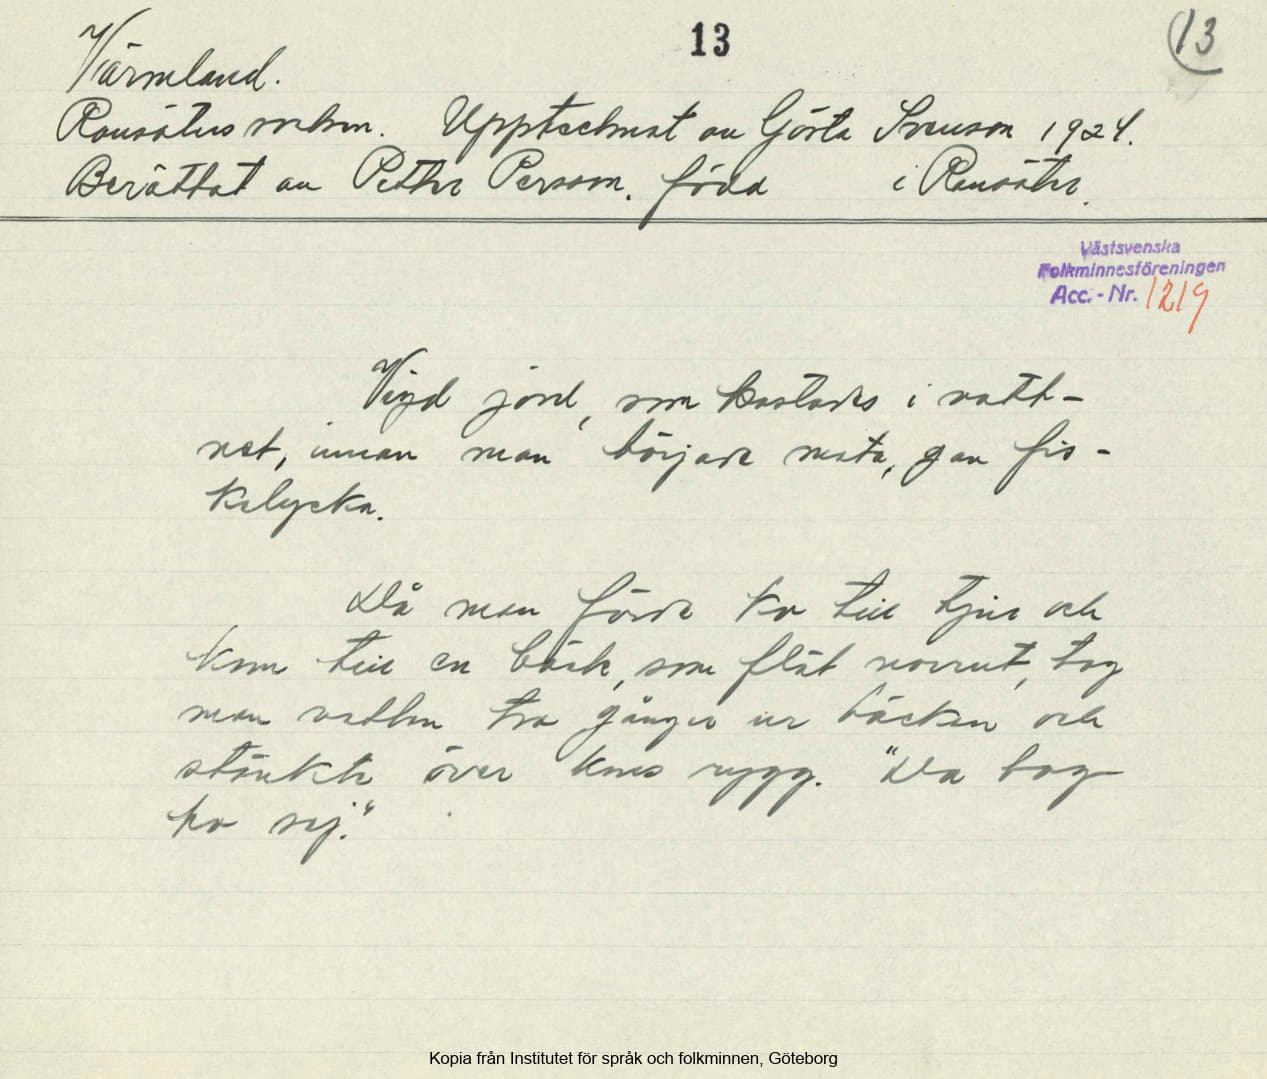 13
13
Värmland.
Ransäters socken. Upptecknat av Gösta Svenson 1924.
Berättat av Petter Persson. född i Ransäter.
Västsvenska
Folkminnesföreningen
Acc.-Nr. 1219
Vigd jord, som kastades i vatt-
net, innan man började meta, gav fis-
kelycka.
Då man förde ko till tjur och
kom till en bäck, som flöt norrut, tog
man vatten tre gånger ur bäcken och
stänkte över kons rygg. "Da tog
ho sej."
Kopia från Institutet för språk och folkminnen, Göteborg